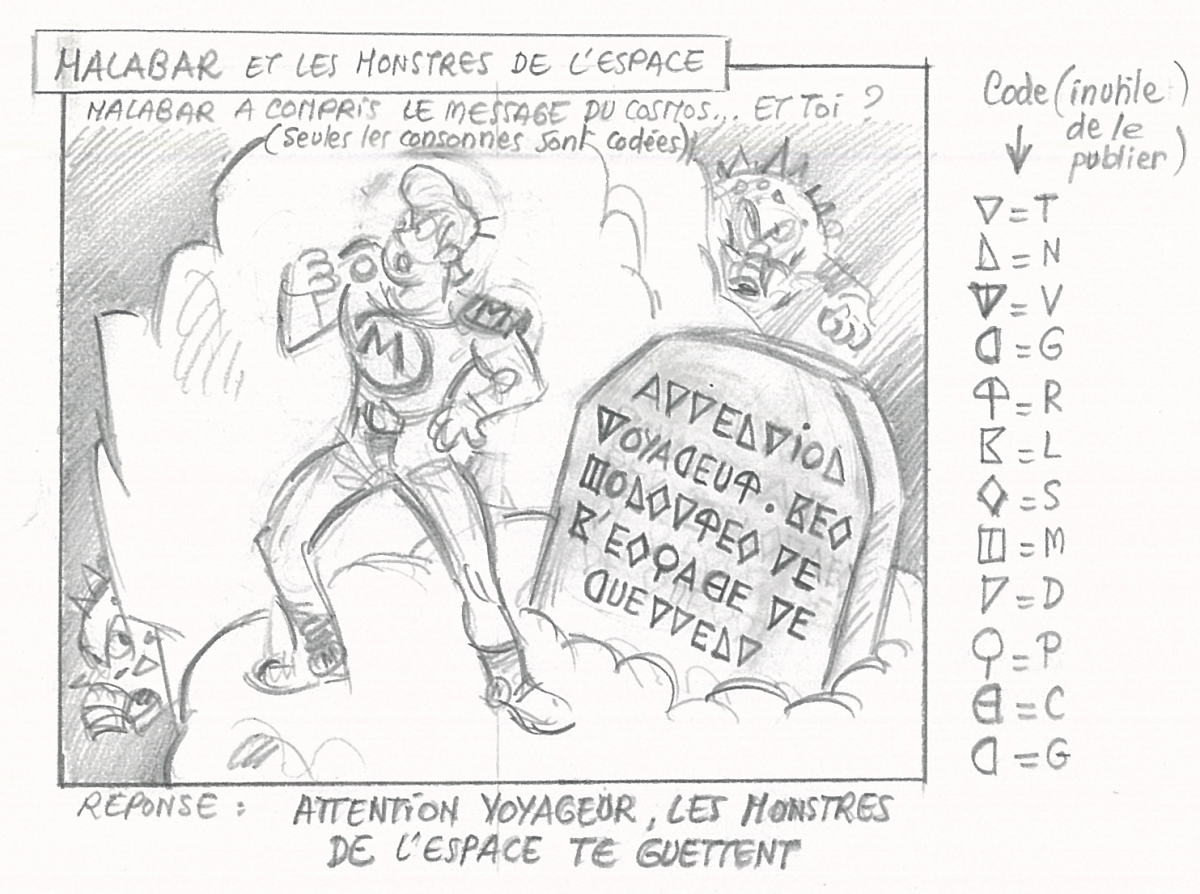 MALABAR ET LES MONSTRES DE L'ESPACE
MALABAR A COMPRIS LE MESSAGE DU COSMOS... ET TOI ?
(Seules les consonnes sont codées)
M
M
Code (inutile
de le
publier)
▽ = T
= N
= V
= G
= R
= L
◊ = S
= M
= D
= P
= C
= G
RÉPONSE : ATTENTION VOYAGEUR, LES MONSTRES
DE L'ESPACE TE GUETTENT